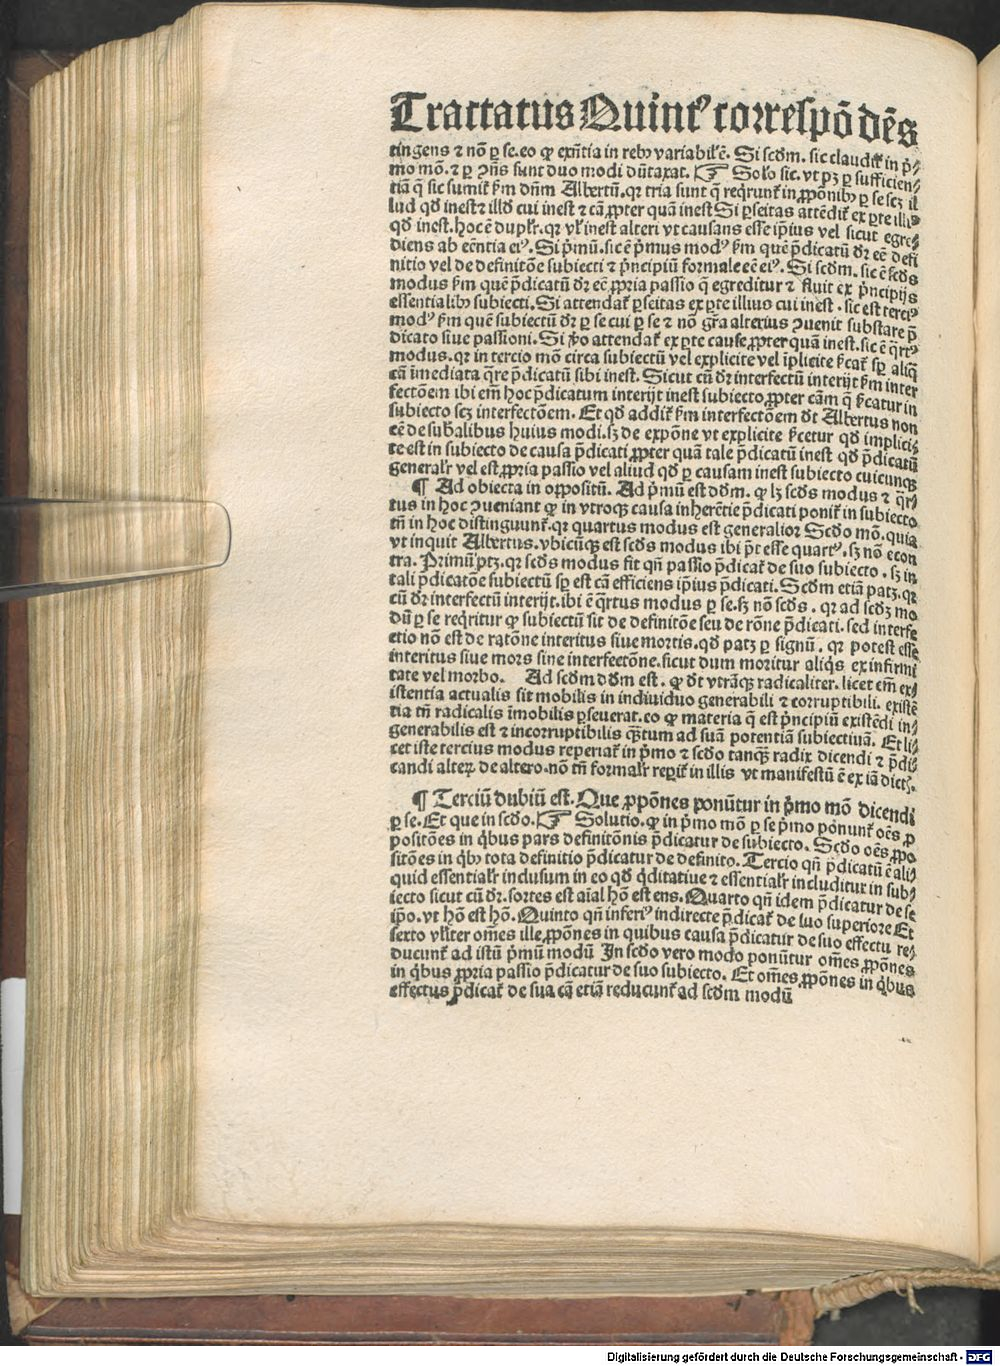 Tractatus Quintꝰ correspōdēs
tingens ⁊ nō ꝑ se. eo ꝙ exn̄tia in rebꝰ variabilꝰ ē. Si scd̄m. sic claudit̃ in p̄-
mo mō. ⁊ ꝑ ꝯn̄s sunt duo modi dūtaxat. ☞ Solo sic. vt pꝫ ꝑ sufficien-
tiā q̄ sic sumit̃ ẜm dn̄m Albertū. qꝛ tria sunt q̄ reqrunt̃ in ꝓpōnibꝰ ꝑ se scꝫ il
lud qd̄ inest ⁊ illd̄ cui inest ⁊ cā ꝓpter quā inest Si ꝑseitas attēdit̃ ex ꝑte illiꝰ
qd̄ inest. hoc ē duplr̃. qꝛ vl̃ inest alteri vt causans esse ip̄ius vel sicut egre-
diens ab eēntia eiꝰ. Si p̄mū. sic ē p̄mus modꝰ ẜm quē p̄dicatū dr̃ eē defi
nitio vel de definitōe subiecti ⁊ p̄ncipiū formale eē eiꝰ. Si scd̄m. sic ē scd̄s
modus ẜm quē p̄dicatū dr̃ eē ꝓpria passio q̄ egreditur ⁊ fluit ex p̄ncipijs
essentialibꝰ subiecti. Si attendat̃ ꝑseitas ex ꝑte illius cui inest. sic est terciꝰ
modꝰ ẜm quē subiectū dr̃ ꝑ se cui ꝑ se ⁊ nō gr̃a alterius ꝯuenit substare p̄
dicato siue passioni. Si ꝟo attendat̃ ex ꝑte cause ꝓpter quā inest. sic ē q̄rtꝰ
modus. qꝛ in tercio mō circa subiectū vel explicite vel īplicite ẜcat̃ sꝑ aliq̄
cā īmediata q̄re p̄dicatū sibi inest. Sicut cū dr̃ interfectū interijt ẜm inter
fectōem ibi em̄ hoc p̄dicatum interijt inest subiecto ꝓpter cām q̄ ẜcatur in
subiecto scꝫ interfectōem. Et qd̄ addit̃ ẜm interfectōem dt̄ Albertus non
eē de subālibus huius modi. sꝫ de expōne vt explicite ẜcetur qd̄ implici-
te est in subiecto de causa p̄dicati ꝓpter quā tale p̄dicatū inest qd̄ p̄dicatū
generalr̃ vel est ꝓpria passio vel aliud qd̄ ꝑ causam inest subiecto cuicunqꝫ
¶ Ad obiecta in oppositū. Ad p̄mū est dd̄m. ꝙ lꝫ scd̄s modus ⁊ q̄r-
tus in hoc ꝯueniant ꝙ in vtroqꝫ causa inherētie p̄dicati ponit̃ in subiecto
tn̄ in hoc distinguunt̃. qꝛ quartus modus est generalior Scd̄o mō. quia
vt inquit Albertus. vbicūqꝫ est scd̄s modus ibi pt̄ esse quartꝰ. sꝫ nō econ
tra. Primū ptꝫ. qꝛ scd̄s modus fit qn̄ passio p̄dicat̃ de suo subiecto. sꝫ in
tali p̄dicatōe subiectū sꝑ est cā efficiens ip̄ius p̄dicati. Scd̄m etiā patꝫ. qꝛ
cū dr̃ interfectū interijt. ibi ē q̄rtus modus ꝑ se. sꝫ nō scd̄s. qꝛ ad scd̄ꝫ mo
dū ꝑ se reqritur ꝙ subiectū sit de definitōe seu de rōne p̄dicati. sed interfe
ctio nō est de ratōne interitus siue mortis. qd̄ patꝫ ꝑ signū. qꝛ potest esse
interitus siue mors sine interfectōne. sicut dum moritur aliqs ex infirmi
tate vel morbo. Ad scd̄m dd̄m est. ꝙ dt̄ vtrāqꝫ radicaliter. licet em̄ exi-
istentia actualis sit mobilis in indiuiduo generabili ⁊ corruptibili. existē
tia tn̄ radicalis īmobilis ꝑseuerat. eo ꝙ materia q̄ est p̄ncipiū existēdi in-
generabilis est ⁊ incorruptibilis qꝫtum ad suā potentiā subiectiuā. Et li-
cet iste tercius modus reperiat̃ in p̄mo ⁊ scd̄o tanqꝫ radix dicendi ⁊ p̄di-
candi alteꝝ de altero. nō tn̄ formalr̃ reꝑit̃ in illis vt manifestū ē ex iā dictꝭ.
¶ Terciū dubiū est. Que ꝓpōnes ponūtur in p̄mo mō dicendi
ꝑ se. Et que in scd̄o. ☞ Solutio. ꝙ in p̄mo mō ꝑ se p̄mo ponunt̃ oēs ꝓ
positōes in qbus pars definitōnis p̄dicatur de subiecto. Scd̄o oēs ꝓpo
sitōes in qbꝰ tota definitio p̄dicatur de definito. Tercio qn̄ p̄dicatū ē ali-
quid essentialr̃ inclusum in eo qd̄ qditatiue ⁊ essentialr̃ includitur in sub-
iecto sicut cū dr̃. sortes est aīal hō est ens. Quarto qn̄ idem p̄dicatur de se
ip̄o. vt hō est hō. Quinto qn̄ inferiꝰ indirecte p̄dicat̃ de suo superiore Et
sexto vlr̃iter omēs ille ꝓpōnes in quibus causa p̄dicatur de suo effectu re-
ducunt̃ ad istū p̄mū modū In scd̄o vero modo ponūtur omēs ꝓpōnes
in qbus ꝓpria passio p̄dicatur de suo subiecto. Et omēs ꝓpōnes in qbus
effectus p̄dicat̃ de sua cā etiā reducunt̃ ad scd̄m modū
Digitalisierung gefördert durch die Deutsche Forschungsgemeinschaft - DFG